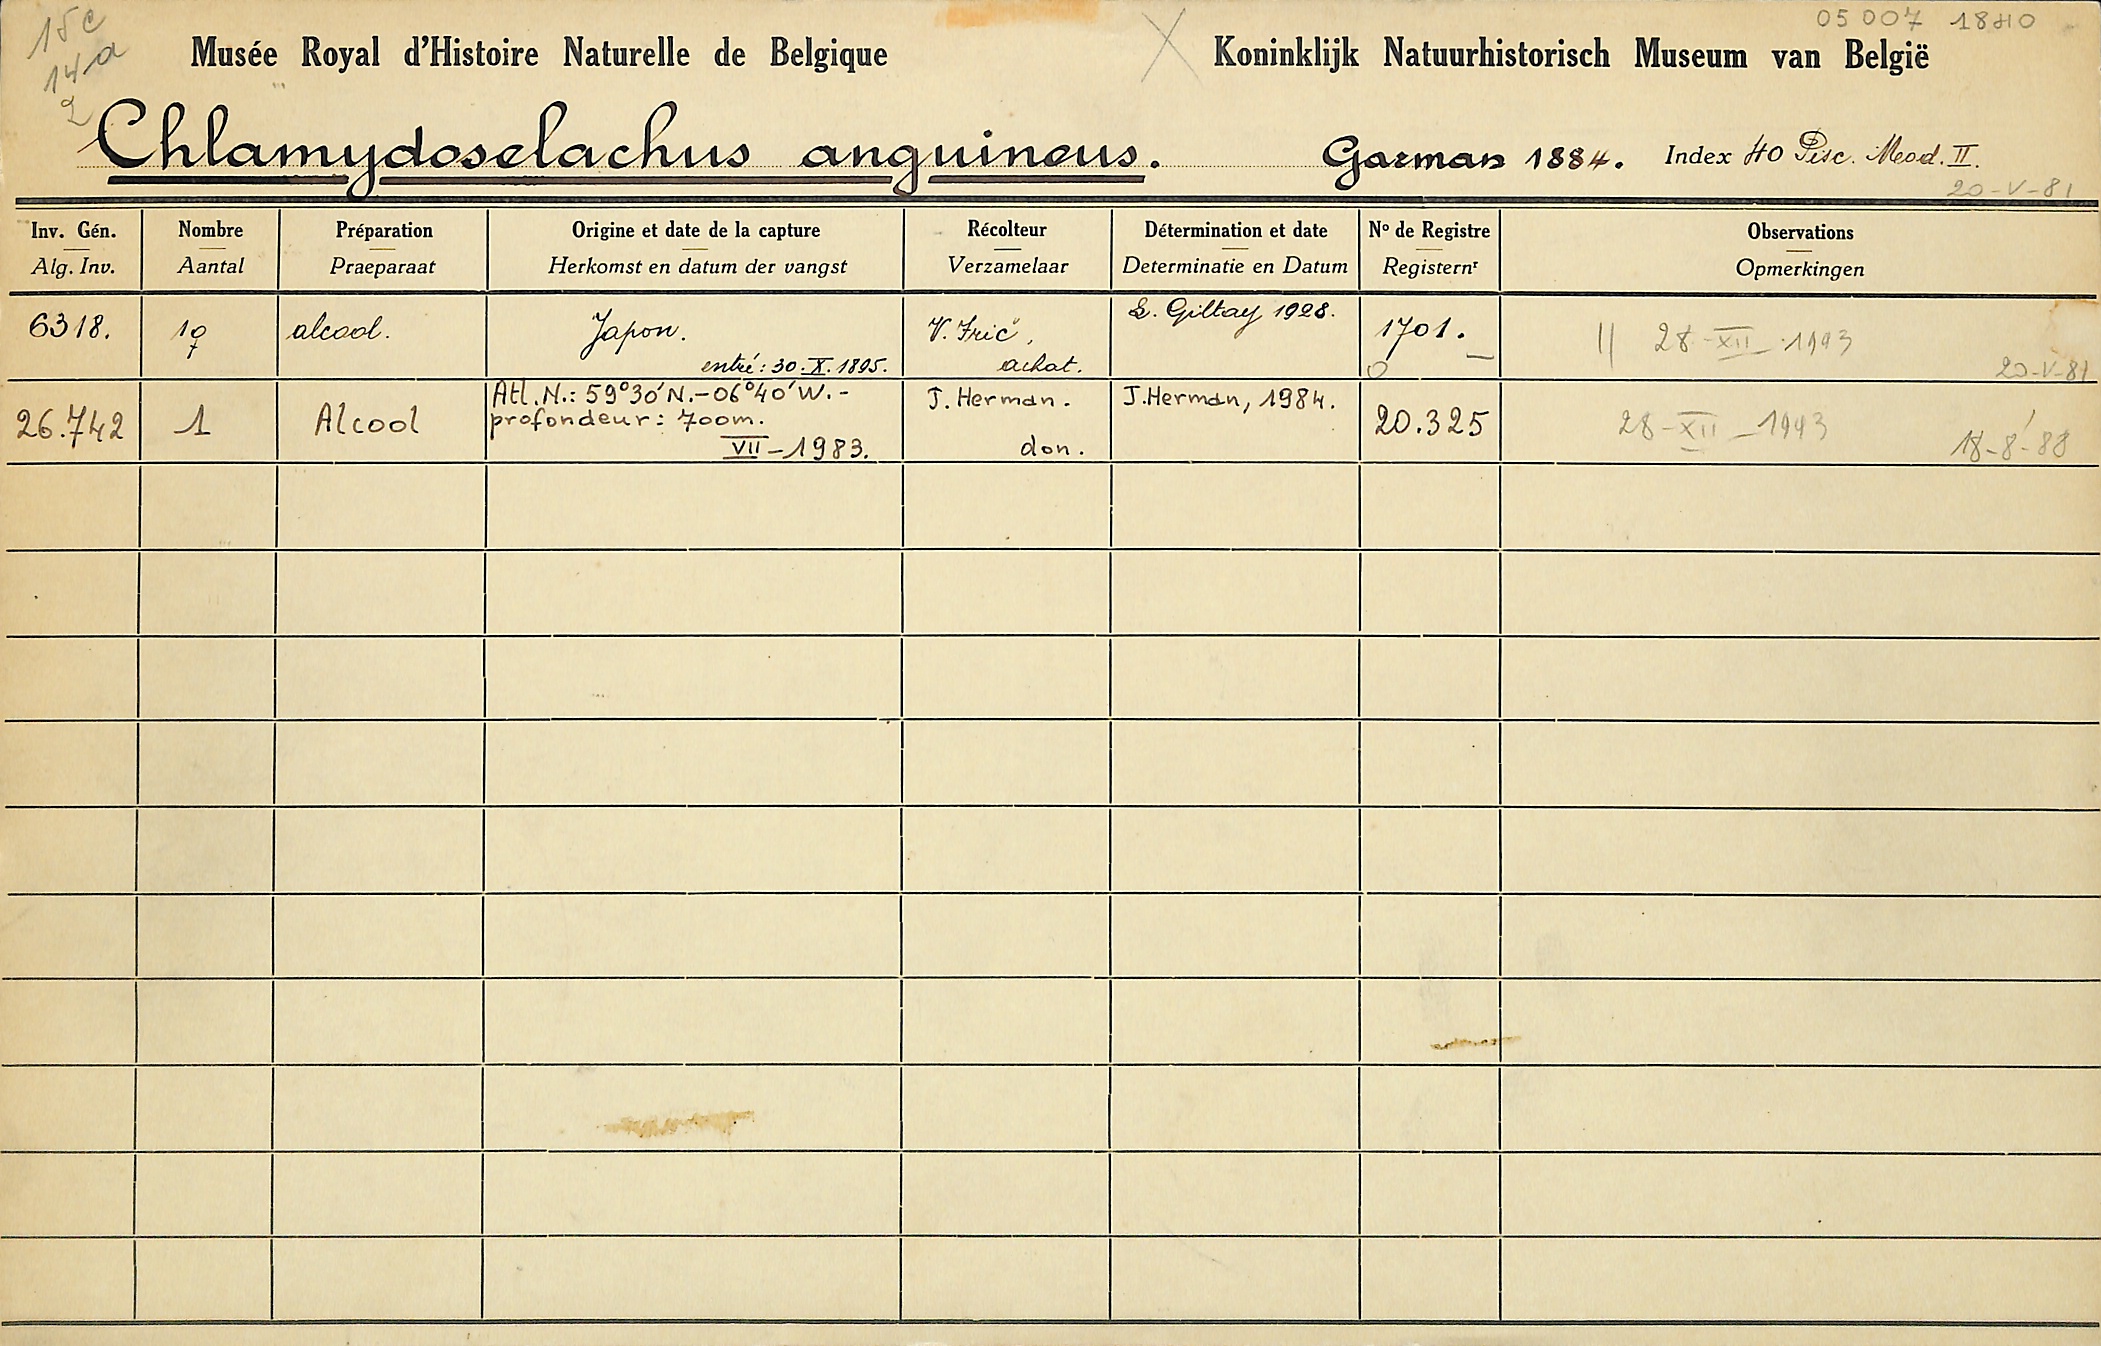 15c
14a
2
05 007 1840
Musée Royal d'Histoire Naturelle de Belgique
Koninklijk Natuurhistorisch Museum van België
Chlamydoselachus anguineus. Garman 1884. Index 40 Pisc. II.
20-V-81
Inv. Gén. Nombre Préparation Origine et date de la capture Récolteur Détermination et date Nº de Registre Observations
Alg. Inv. Aantal Praeparaat Herkomst en datum der vangst Verzamelaar Determinatie en Datum Registernʳ Opmerkingen
6318. 1♀ alcool. Japon. V. Fric, L. Giltay 1928. 1701. 28-XII-1993
entré: 30.X.1895. achat. 20-V-81
26.742 1 Alcool Atl.N.: 59°30'N.-06°40'W.- J. Herman. J.Herman, 1984. 20.325 28-XII-1993
profondeur: 700m.
VII-1983. don. 18-8-88